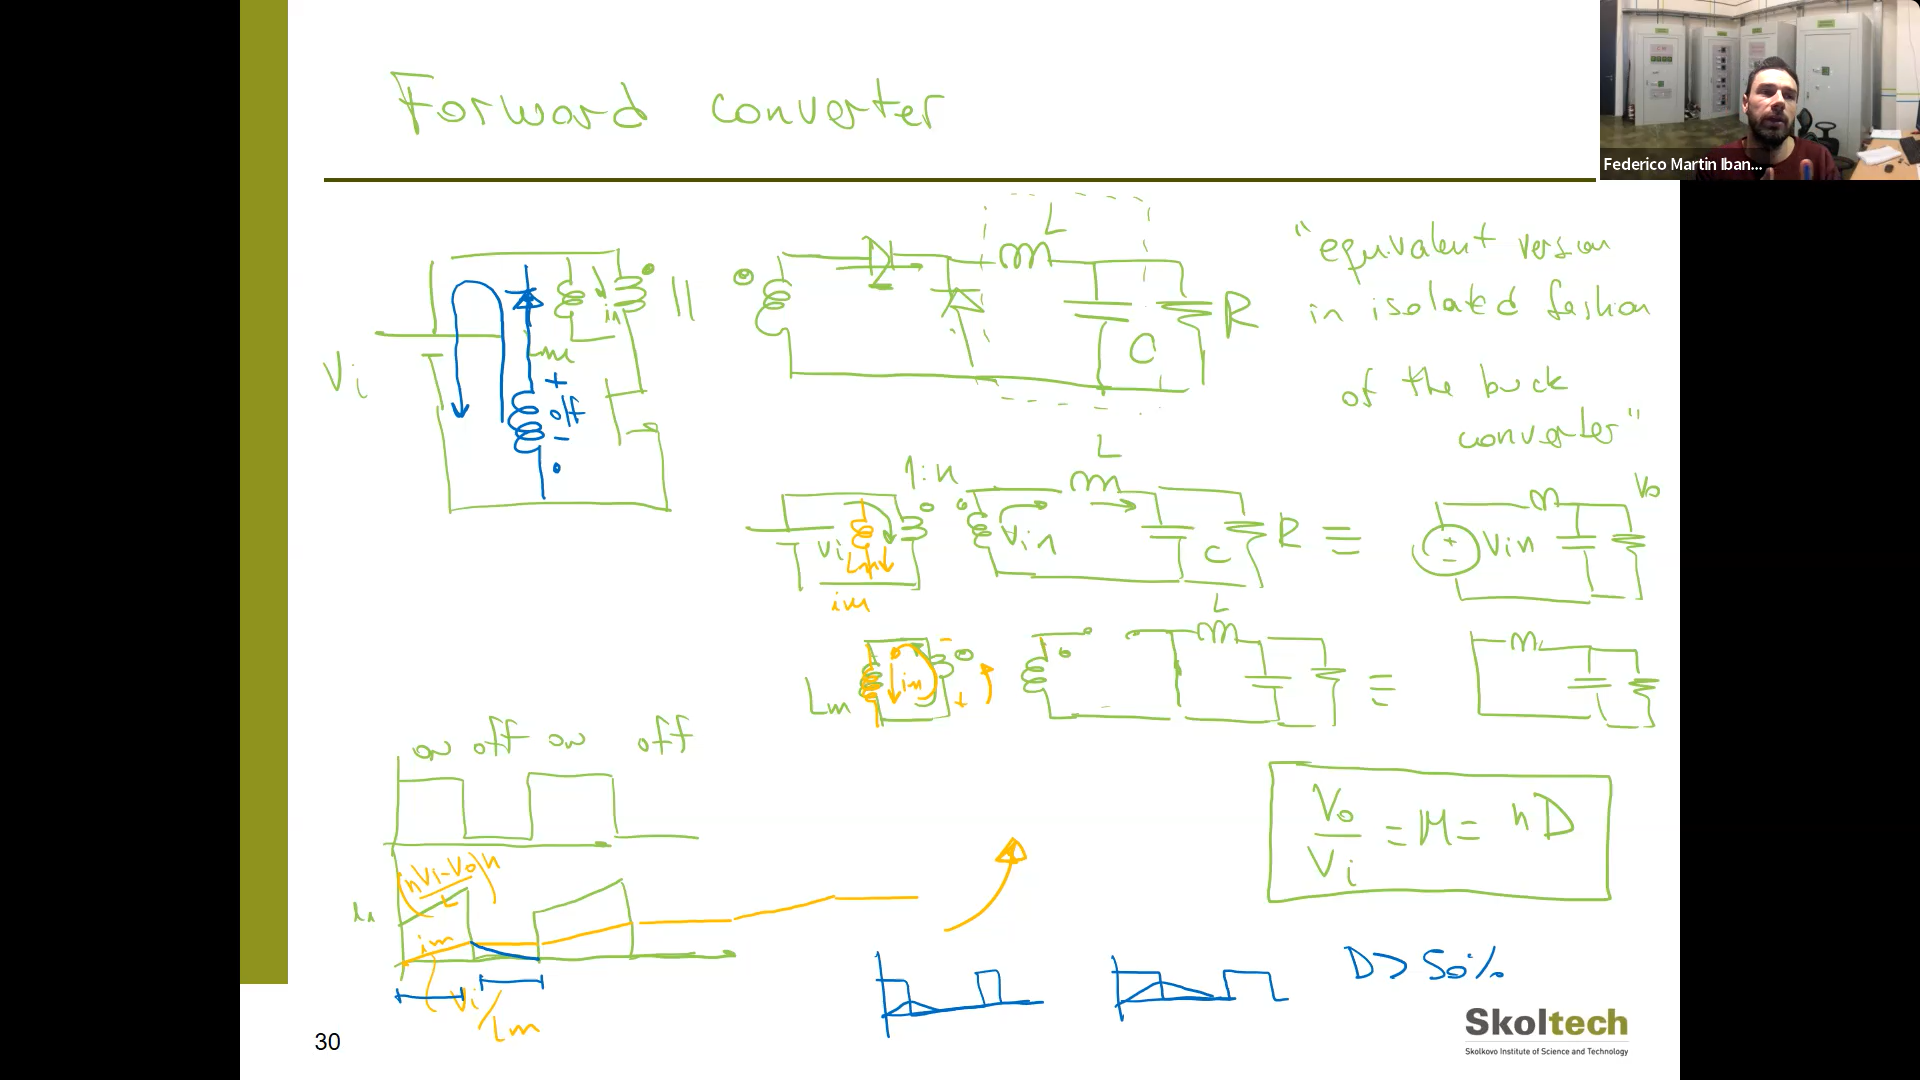 Forward converter
Federico Martin Iban...
"equivalent version
in isolated fashion
of the buck
converter"
L
Vi
im
Lm
+
off
-
C
R
1:n
L
Vi
Lm
im
Vin
C
R
≡
+
-
Vin
Vo
L
Lm
im
-
+
≡
on off on off
(nVi-Vo)n
L
im
Vi/Lm
Vo
Vi
= M = nD
D > 50%
Skoltech
Skolkovo Institute of Science and Technology
30